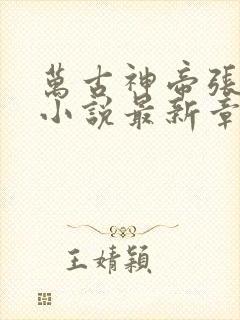 萬古神帝張
小說最新章
王婧穎